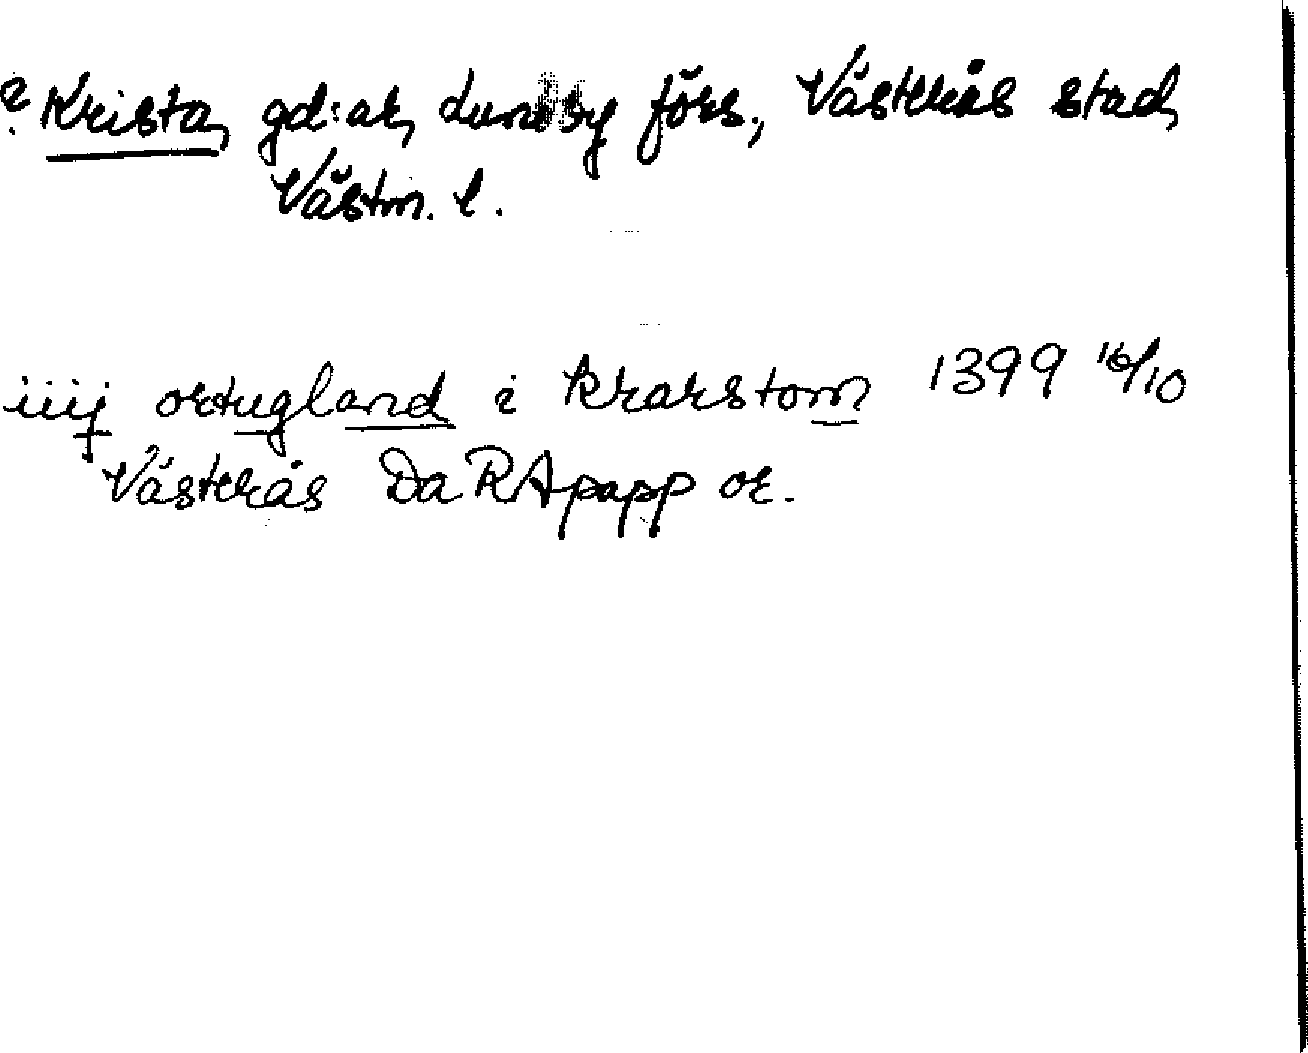 ? Krista, gd:ar, Lundby förs., Västerås stad,
Västm. l.
iiij ortugland i krarstom 1399 16/10
Västerås Da RApapp or.